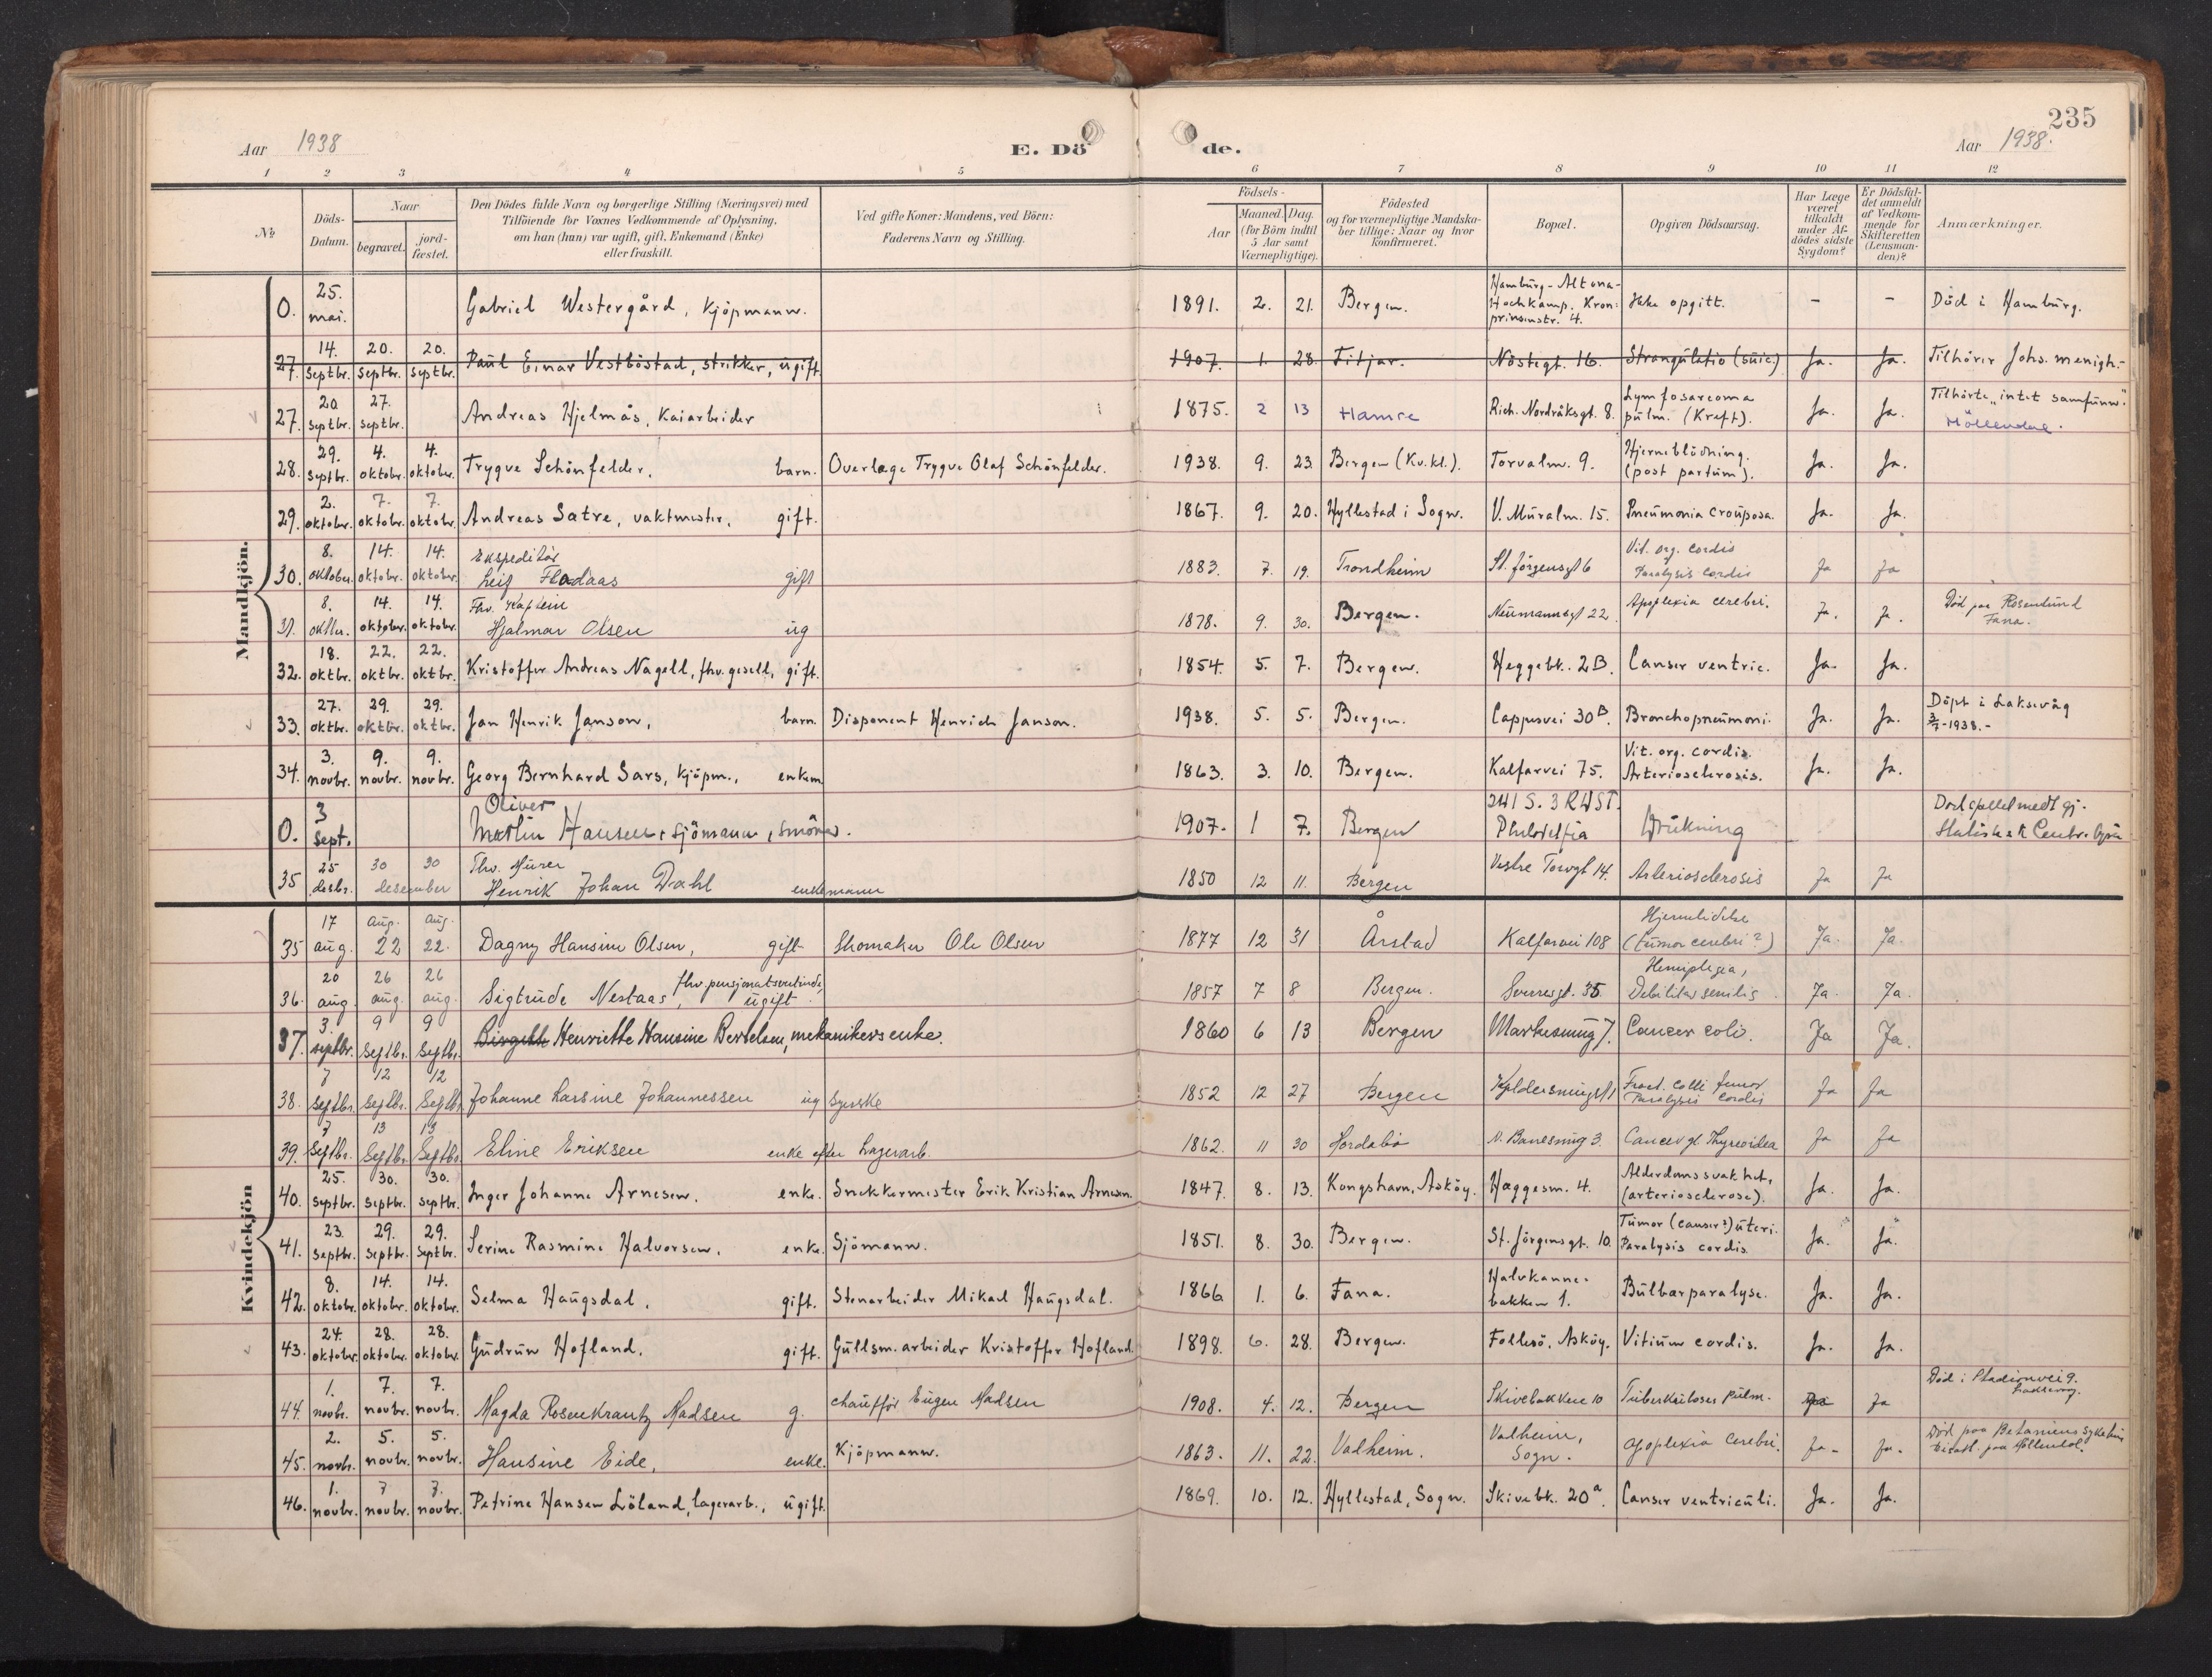 235
Aar 1938
E. Döde.
Aar 1938.
1 2 3 4 5 6 7 8 9 10 11 12
No
Döds-Datum.
Naar
begravet.
jord-fæstet.
Den Dödes fulde Navn og borgerlige Stilling (Næringsvei) med
Tilföiende for Voxnes Vedkommende af Oplysning,
om han (hun) var ugift, gift, Enkemand (Enke)
eller fraskilt.
Ved gifte Koner: Mandens, ved Börn:
Faderens Navn og Stilling.
Födsels-
Aar
Maaned. Dag.
(for Börn indtil
5 Aar samt
Værnepligtige).
Födested
og for værnepligtige Mandska-
ber tillige: Naar og hvor
konfirmeret.
Bopæl.
Opgiven Dödsaarsag.
Har Læge
været
tilkaldt
under Af-
dödes sidste
Sygdom?
Er Dödsfal-
det anmeldt
af Vedkom-
mende for
Skifteretten
(Lensman-
den)?
Anmærkninger.
Mandkjön.
0. 25. mai. Gabriel Westergård, Kjöpmann. 1891. 2. 21. Bergen. Hamburg-Altona-Hochkamp. Kronprinsenstr. 4. Ikke opgitt. - - Död i Hamburg.
27. 14. septbr. 20. septbr. 20. septbr. Paul Einar Vestböstad, strikker, ugift. 1907. 1. 28. Fitjar. Nöstegt. 16. Strangulatio (suic.) Ja. Ja. Tilhörer Johs. menigh.-
27. 20 septbr. 27. septbr. Andreas Hjelmås, Kaiarbeider 1875. 2 13 Hamre Rich. Nordråksgt. 8. Lymfosarcoma pulm. (Kreft). Ja. Ja. Tilhörte "intet samfunn". Möllendal.
28. 29. septbr. 4. oktober. 4. oktober. Trygve Schönfelder. barn. Overlæge Trygve Olaf Schönfelder. 1938. 9. 23. Bergen (Kv.kl.). Torvalm. 9. Hjerneblödning. (post partum). Ja. Ja.
29. 2. oktober. 7. oktober. 7. oktober. Andreas Sætre, vaktmester. gift. 1867. 9. 20. Hyllestad i Sogn. V. Muralm. 15. Pneumonia crouposa. Ja. Ja.
30. 8. oktober. 14. oktober. 14. oktober. Ekspeditör Leif Fladaas gift 1883. 7. 19. Trondheim St. Jörgensgt 6 Vit. org. cordis Paralysis cordis Ja Ja
31. 8. oktbr. 14. oktober. 14. oktober. Fhv. Kaptein Hjalmar Olsen ug 1878. 9. 30. Bergen. Neumannsgt 22. Apoplexia cerebri. Ja. Ja. Död paa Rosenlund Fana.
32. 18. oktbr. 22. oktbr. 22. oktbr. Kristoffer Andreas Nagell, fhv. gesell, gift. 1854. 5. 7. Bergen. Heggebk. 2B. Canser ventric. Ja. Ja.
33. 27. oktbr. 29. oktbr. 29. oktbr. Jan Henrik Janson, barn. Disponent Henrich Janson. 1938. 5. 5. Bergen. Cappesvei 30B. Bronchopneumoni. Ja. Ja. Döpt i Laksevåg 3/7-1938.-
34. 3. novbr. 9. novbr. 9. novbr. Georg Bernhard Sars, Kjöpm., enkem 1863. 3. 10. Bergen. Kalfarvei 75. Vit. org. cordis. Arteriosclerosis. Ja. Ja.
0. 3 sept. Oliver Martin Hansen, sjömann, smörer. 1907. 1 7. Bergen 241 S. 3 RWST. Philadelfia Drukning Dödsfallet medt gj. Statistisk Centr. byrå
35 25 desbr. 30 30 desember Fhv. Murer Henrik Johan Dahl enkemann 1850 12 11. Bergen Vestre Torvgt 14. Arteriosclerosis Ja Ja
Kvindekjön
35 17 aug. aug. 22 aug. 22. Dagny Hansine Olsen, gift Skomaker Ole Olsen 1877 12 31 Årstad Kalfarvei 108 Hjernelidelse (tumor cerebri?) Ja. Ja.
36. 20 aug. 26 aug. 26 aug. Sigtrude Nestaas, fhv. pensjonatsvertinde, ugift. 1857 7 8 Bergen. Sverresgt. 35 Hemiplegia, Debilitas senilis Ja. Ja.
37. 3. septbr. 9 septbr. 9 septbr. Birgitte Henriette Hansine Bertelsen, mekanikers enke. 1860 6 13 Bergen Markesmug 7. Cancer coli. Ja Ja.
38. 7 septbr. 12 septbr. 12 septbr. Johanne Larsine Johannessen ug syerske 1852 12 27 Bergen Fract. colli femor Paralysis cordis Ja Ja
39. 7 septbr. 13 septbr. 13 septbr. Eline Eriksen enke efter Lagerarb. 1862. 11 30 Hordabö N. Banesmug 3. Cancer gl. Thyreoidea Ja Ja
40. 25. septbr. 30. septbr. 30. septbr. Inger Johanne Arnesen. enke. Snekkermester Erik Kristian Arnesen. 1847. 8. 13. Kongshavn, Asköy. Haggesm. 4. Alderdomssvakhet, (arteriosclerose). Ja. Ja.
41. 23. septbr. 29. septbr. 29. septbr. Serine Rasmine Halvorsen. enke. Sjömann. 1851. 8. 30. Bergen. St. Jörgensgt. 10. Tumor (canser?) uteri. Paralysis cordis. Ja. Ja.
42. 8. oktober. 14. oktober. 14. oktober. Selma Haugsdal. gift. Stenarbeider Mikael Haugsdal. 1866 1. 6. Fana. Halvkannebakken 1. Bulbærparalyse. Ja. Ja.
43. 24. oktober. 28. oktober. 28. oktober. Gudrun Hofland. gift. Gullsm.arbeider Kristoffer Hofland. 1898. 6. 28. Bergen. Follesö, Asköy. Vitium cordis. Ja. Ja.
44. 1. novbr. 7. novbr. 7. novbr. Magda Rosenkrantz Madsen g. chauffför Eugen Madsen 1908. 4. 12. Bergen Skivebakken 10 Tuberkuloses pulm. Ja Död i Stadionvei 9.
45. 2. novbr. 5. novbr. 5. novbr. Hansine Eide, enke. Kjöpmann. 1863. 11. 22. Vadheim. Vadheim, Sogn. Apoplexia cerebri. Ja. Ja. Död paa Betaniens Sykehus Bisatt. paa Möllendal.
46. 1. novbr. 7 novbr. 7. novbr. Petrine Hansen Löland, lagerarb., ugift. 1869. 10. 12. Hyllestad, Sogn. Skivebk. 20a. Canser ventriculi. Ja. Ja.